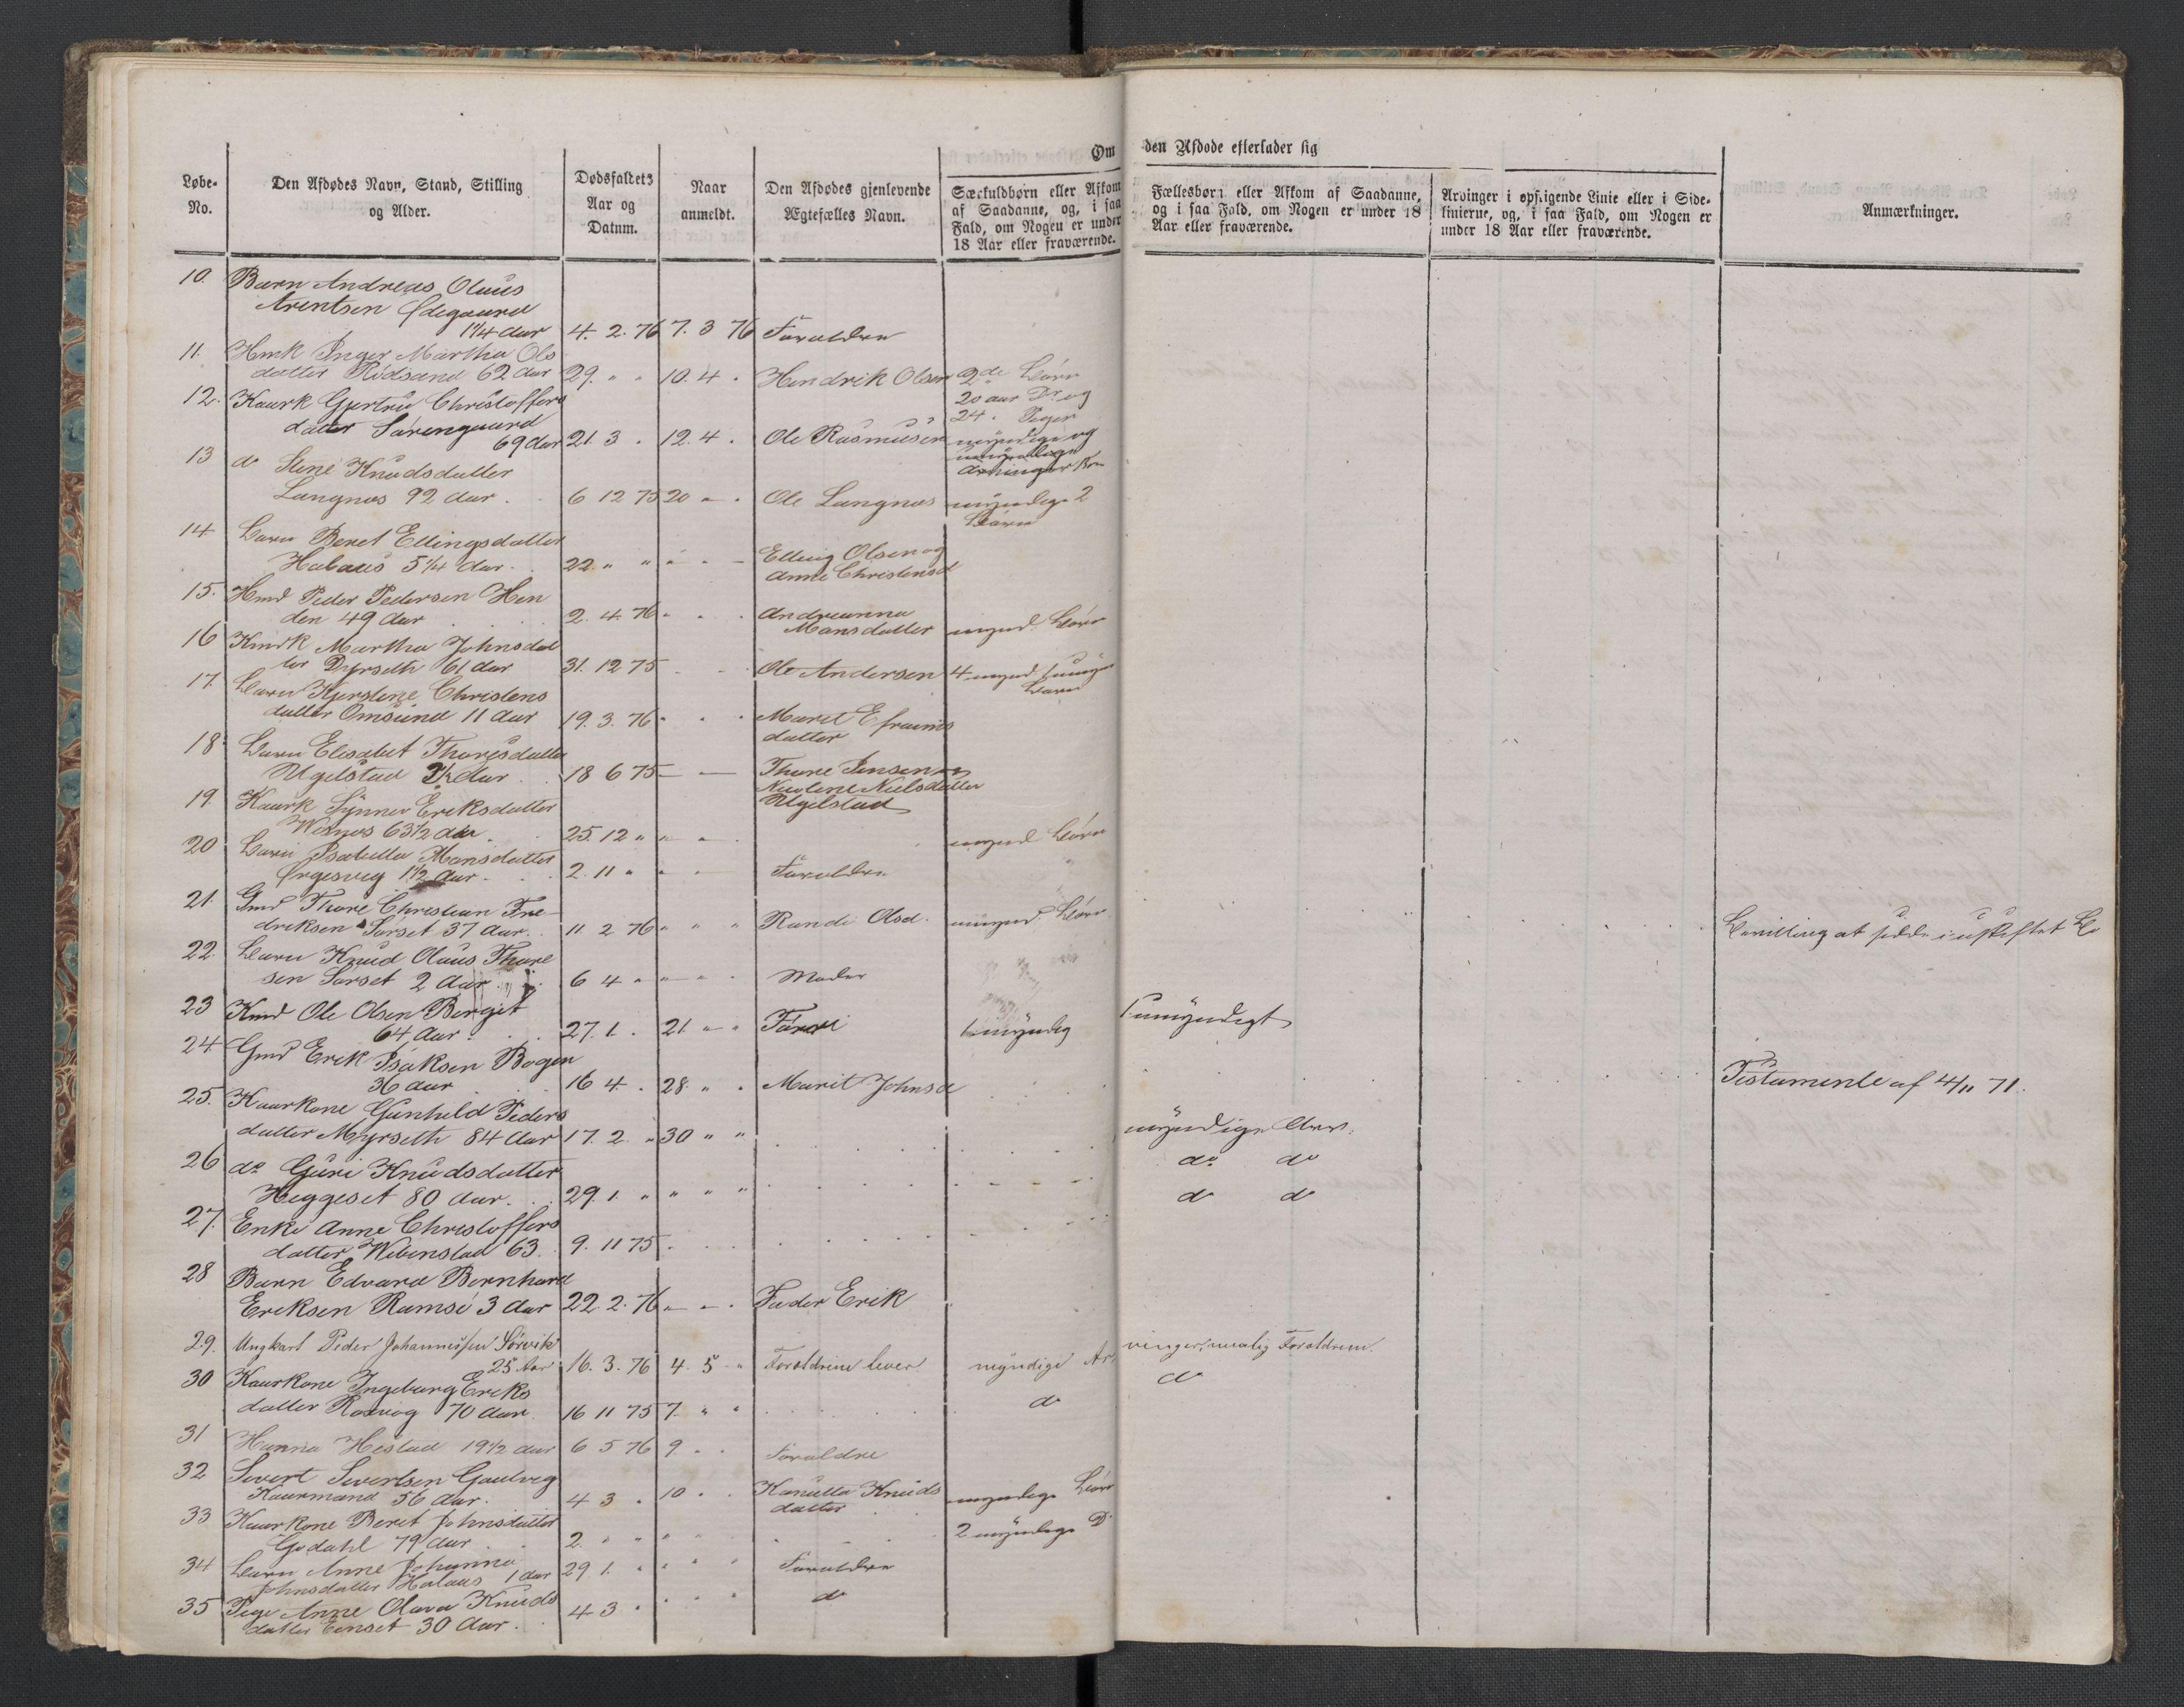 Om den Afdøde efterlader sig
Løbe-
No.
Den Afdødes Navn, Stand, Stilling
og Alder.
Dødsfaldets
Aar og
Datum.
Naar
anmeldt.
Den Afdødes gjenlevende
Ægtefælles Navn.
Særkuldbørn eller Afkom
af Saadanne, og, i saa
Fald, om Nogen er under
18 Aar eller fraværende.
Fællesbørn eller Afkom af Saadanne,
og i saa Fald, om Nogen er under 18
Aar eller fraværende.
Arvinger i opstigende Linie eller i Side-
linierne, og, i saa Fald, om Nogen er
under 18 Aar eller fraværende.
Anmærkninger.
10. Barn Andreas Olaus
Arentsen Ødegaard
1 1/4 Aar 4. 2. 76 7. 3 76 Forældre
11. Hmk Inger Martha Ols
datter Rødsand 62 Aar 29. " " 10. 4 . Hendrik Olsen 2de Børn
20 aar Dr og
24 . Piger
12. Kaark Gjertru Christoffers
datter Sørengaard
69 Aar 21. 3 . 12. 4 . Ole Rasmusen myndige og
umyndige
Arvinger
13 do Stene Knudsdatter
Langnæs 92 Aar . 6 12 75 20 " . Ole Langnæs myndige 2
Børn
14 Barn Beret Ellingsdatter
Halaus 5 1/4 Aar . 22 " " " . Elling Olsen og
Anne Christensd
15. Hmd Peder Pedersen Hen
den 49 Aar 2. 4. 76 " . . Andreanna
Monsdatter mynd. Børn
16 Kmdk Martha Johnsdat
ter Dyrseth 61 Aar 31. 12 75 Ole Andersen 4 mynd 1 umyn
Barn
17. Barn Kjerstine Christens
datter Omsund 11 Aar 19. 3. 76 " . . Maret Efraims
datter
18 Barn Elisabet Thoresdatter
Ugelstad Aar . 18 6 75 Thore Jensen og
Nicoline Nielsdatter
Ugelstad
19. Kaark Synnev Ereksdatter
63 1/2 Aar . 25 12 " " " mynd Børn
20 Barn Isabella Monsdatter
Ørgesvig 1 1/2 Aar . 2. 11 " " Forældre
21. Gmd Thore Christian Fre
driksen Sørset 37 Aar . 11. 2 76 " " " Randi Olsd. umynd Børn Bevilling at sidde i uskiftet Bo
22. Barn Knud Olaus Thore
sen Sørset 2 Aar 6 4 " " " . Moder
23 Kmd Ole Olsen Berget
64 Aar . 27. 1 . 21. " " 1 myndig 1 umyndigt
24. Gmd Erek Isaksen Bogen
36 Aar 16 4 . 28. " . Marit Johnsd Testamente af 4/11 71.
25. Kaarkone Gunhild Peders
datter Myrseth 84 Aar 17. 2. " 30 " " myndige Arv.
26 do Guri Knudsdatter
Heggeset 80 Aar . 29. 1. " " " " do do
27. Enke Anne Christoffers
datter Webenstad 63. 9. 11 75 do do
28 Barn Edvard Bernhard
Ereksen Ramsø 3 Aar 22. 2. 76 " " . Fader Erek
29. Ungkarl Peder Johannessen Sørvik
25 Aar 16. 3. 76 4. 5 " Forældrene lever myndige Arvinger, nemlig Forældrene
30 Kaarkone Ingeborg Ereks
datter Rosvog 70 Aar . 16 11 75 7. " " do do
31 Hanna Hestad 19 1/2 Aar 6 5 76 9. . . Forældre
32 Severt Severtsen Gaulveg
Kaarmand 56 Aar . 4 3 . 10 . . Kanutta Knuds
datter myndige Børn
33 Kaarkone Beret Johnsdatter
Godahl 79 Aar 2. " " " " 2 myndige D
34 Barn Anne Johanna
Johnsdatter Halaus 1 Aar 29 1. " " " " Forældre
35 Pige Anne Olava Knuds
datter Eenset 30 Aar . 4 3 " " " " do